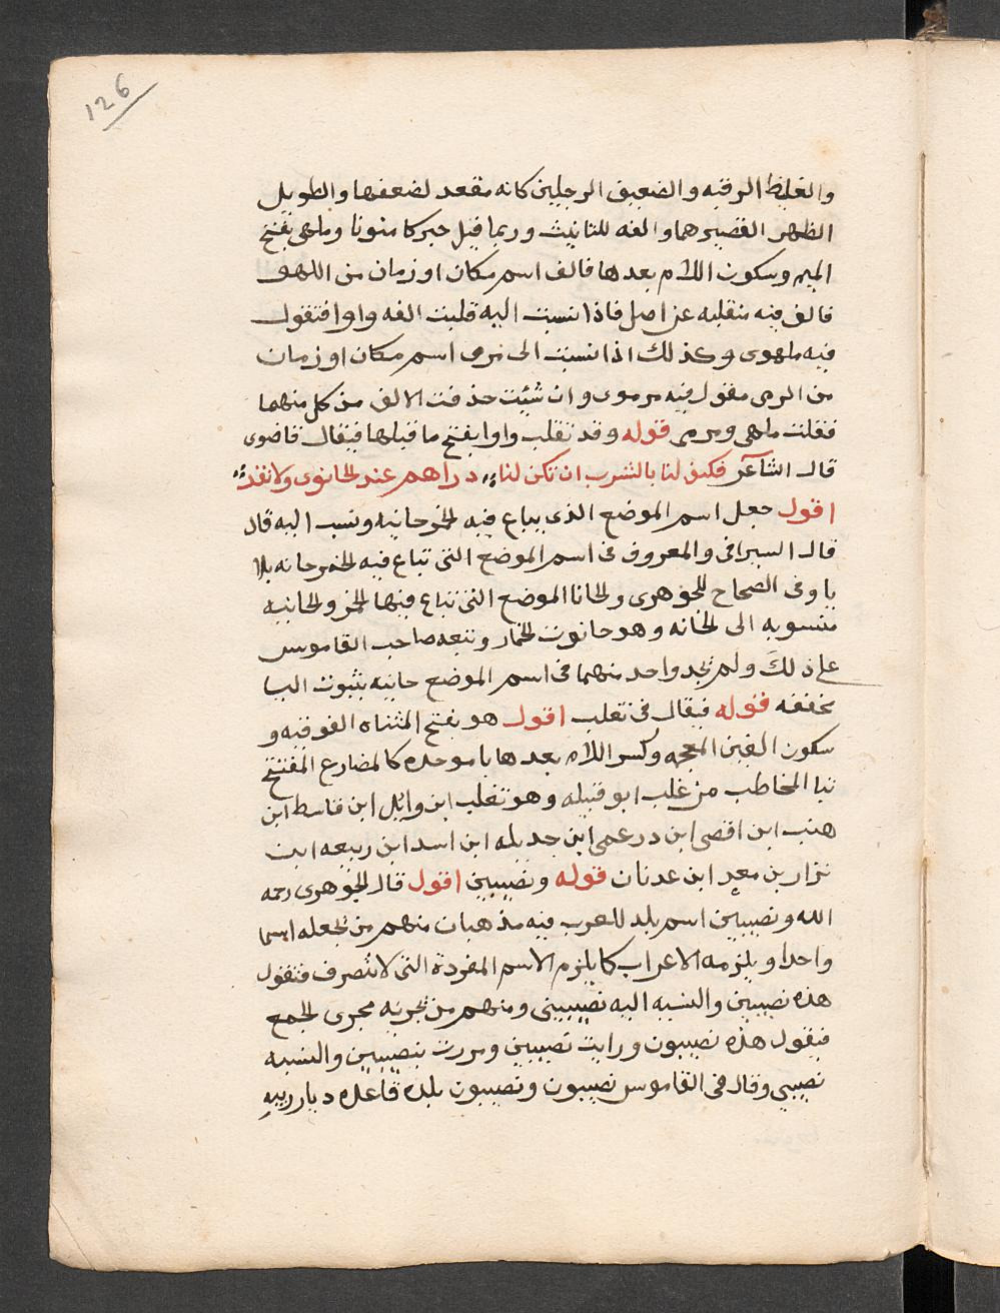 126
والغليظ الرقبه والضعيف الرجلين كانه مقعد لضعفها والطويل
الظهر القصيرهما والفه للتانيث وربما قيل حبركا منونا وملهى بفتح
الميم وسكون اللام بعدها فالف اسم مكان او زمان من اللهو
فالف فيه منقلبه عن اصل فاذا نسبت اليه قلبت الفه واوا فتقول
فيه ملهوى وكذلك اذا نسبت الى مرمى اسم مكان او زمان
من الرمى مقول فيه مرموى وان شئيت حذفت الالف من كل منهما
فقلت ملهى ومرمى قوله وقد تقلب واوا بفتح ما قبلها فيقال قاضوى
قال الشاعر فكيف لنا بالشرب ان تكن لنا دراهم عند الحانوى ولا نقد
اقول جعل اسم الموضع الذى يباع فيه الخمر حانيه ونسب اليه قال
قال السيرافى والمعروف فى اسم الموضع التى تباع فيه الخمر حانه بلا
يا وفى الصحاح للجوهرى والحانا الموضع التى تباع فيها الخمر والحانيه
منسوبه الى الحانه وهو حانوت الخمار وتبعه صاحب القاموس
على ذلك ولم نجد واحد منهما فى اسم الموضع حانيه بثبوت اليا
مخففه قوله فيقال فى تغلب اقول هو بفتح المثناه الفوقيه و
سكون الغين المعجمه وكسر اللام بعدها با موحده كالمضارع المفتتح
بتا المخاطب من غلب ابو قبيله وهو تغلب ابن وائل ابن قاسط ابن
هنب ابن افصى ابن دعمى ابن جديله ابن اسد ابن ربيعه ابن
نزار بن معد ابن عدنان قوله ونصيبين اقول قال الجوهرى رحمه
الله ونصيبين اسم بلد للعرب فيه مذهبان منهم من يجعله اسما
واحدا ويلزمه الاعراب كما يلزم الاسم المفردة التى لا تنصرف فتقول
هذه نصيبين والنسبه اليه نصيبينى ومنهم من يجريه مجرى الجمع
فيقول هذه نصيبون ورايت نصيبين ومررت بنصيبين والنسبه
نصيبى وقال فى القاموس نصيبون ونصيبون بلده قاعده ديار ربيعه